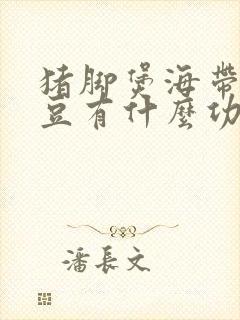 猪脚煲海带
豆有什麼功
潘長文